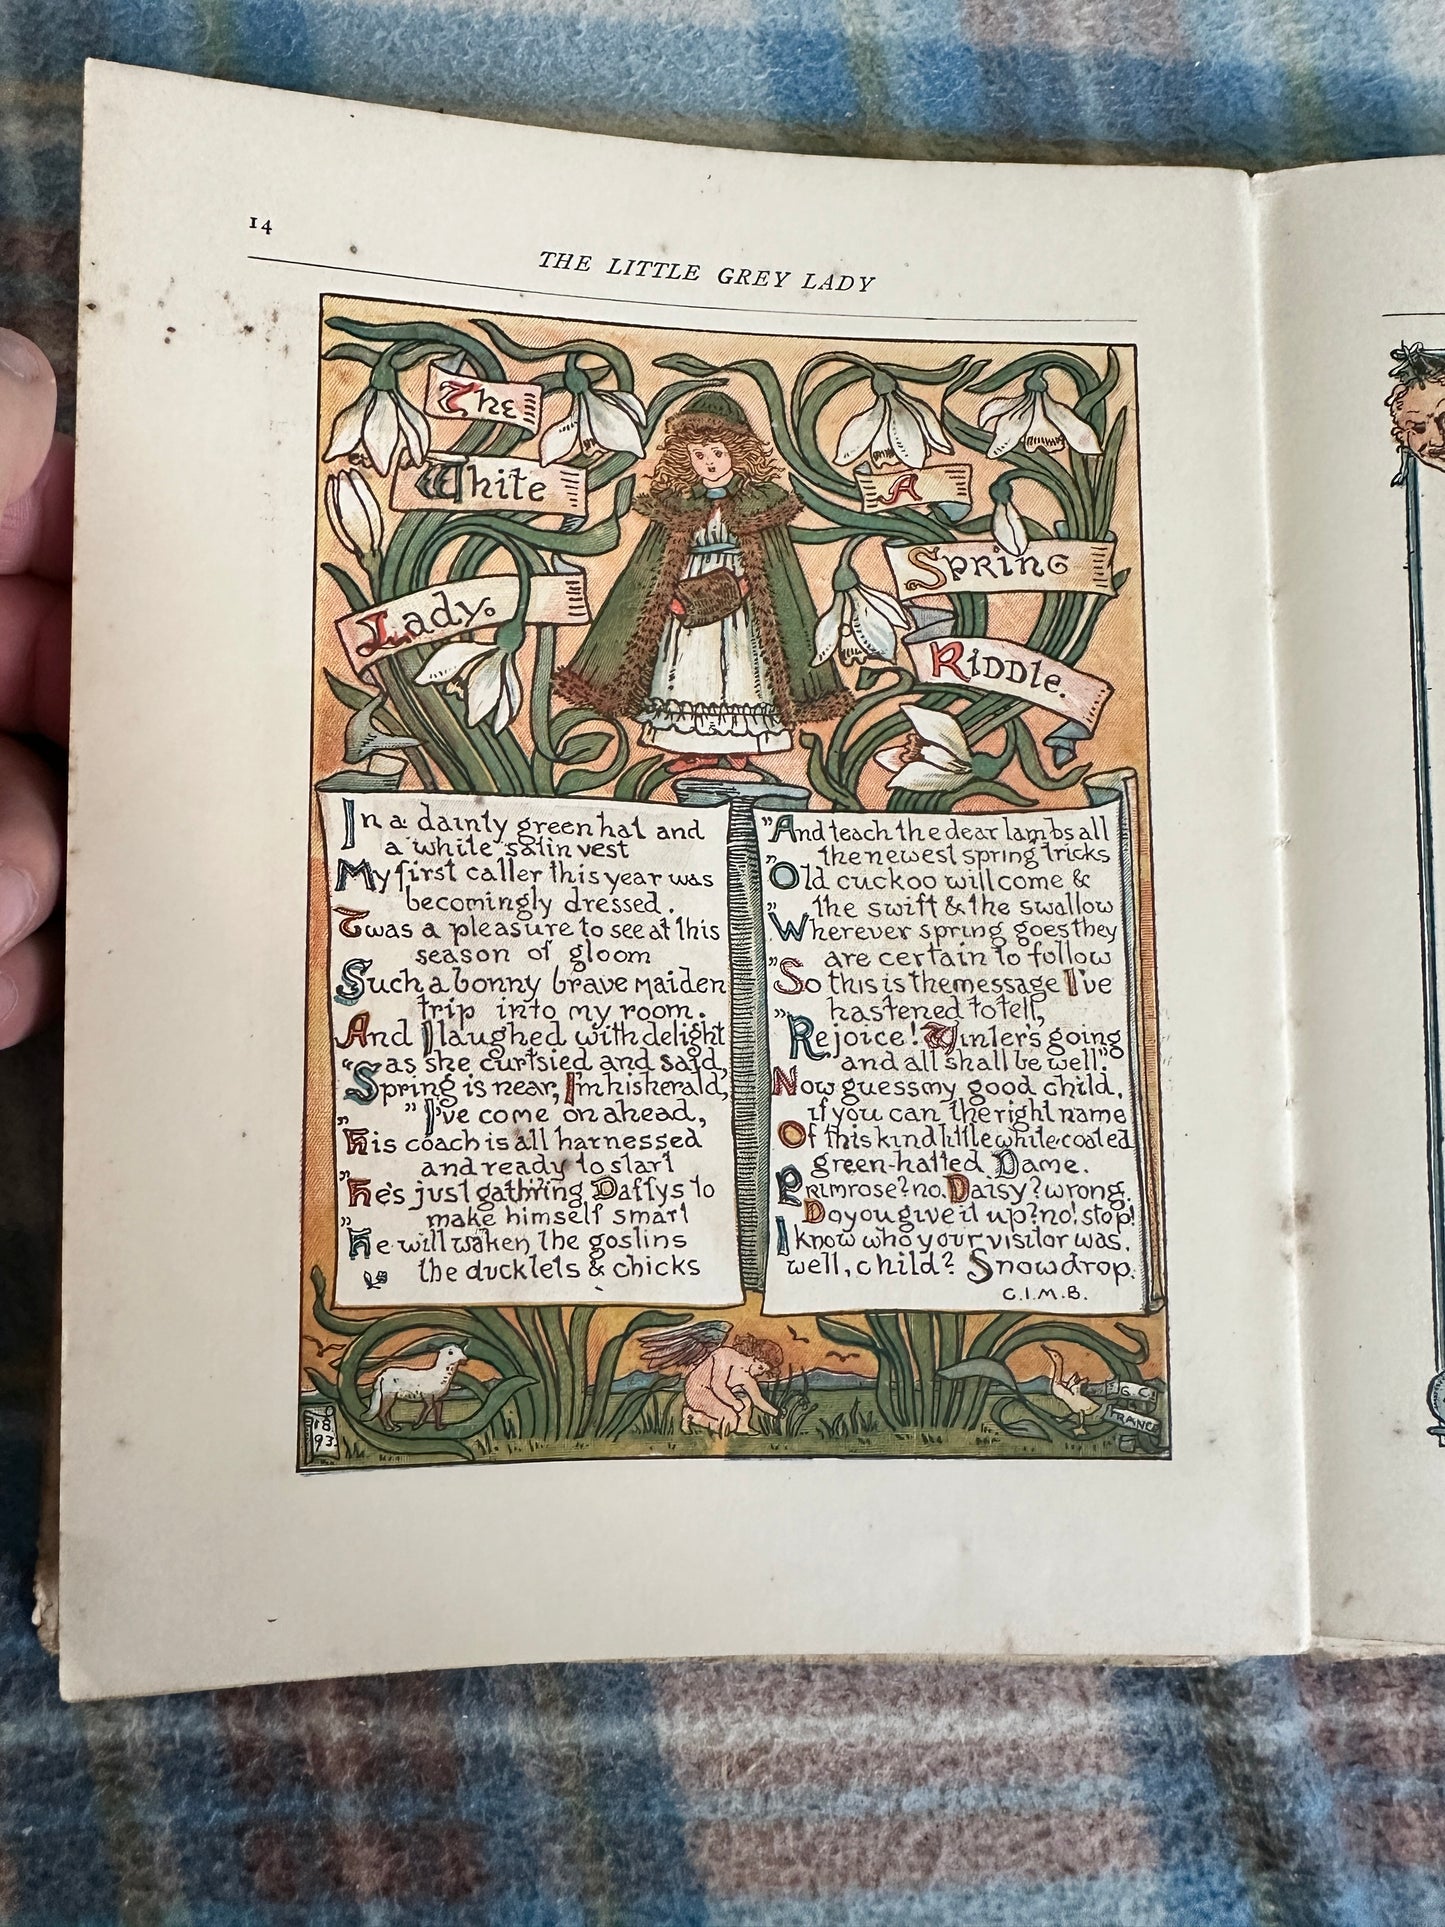 14
THE LITTLE GREY LADY
The
White
Lady.
A
Spring
Riddle.
In a dainty green hat and
a white satin vest
My first caller this year was
becomingly dressed.
Twas a pleasure to see at this
season of gloom
Such a bonny brave maiden
trip into my room.
And I laughed with delight
as she curtsied and said,
"Spring is near, I'm his herald,
"I've come on ahead,
"His coach is all harnessed
and ready to start
"He's just gath'ring Daffys to
make himself smart
"He will waken the goslins
the ducklets & chicks
"And teach the dear lambs all
the newest spring tricks
"Old cuckoo will come &
the swift & the swallow
"Wherever spring goes they
are certain to follow
"So this is the message I've
hastened to tell,
"Rejoice! Winter's going
and all shall be well".
Now guess my good child,
if you can the right name
Of this kind little white-coated
green-hatted Dame.
Primrose? no. Daisy? wrong.
Do you give it up? no! stop!
I know who your visitor was.
well, child? Snowdrop.
C.I.M.B.
18
93.
G. C.
FRANCE